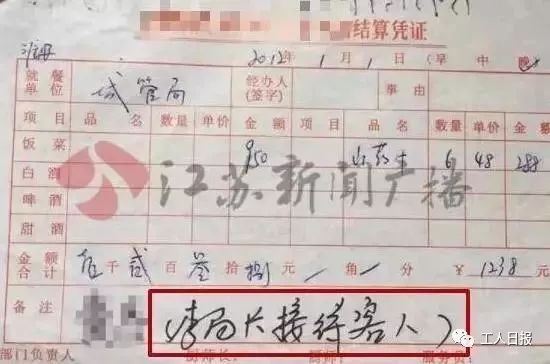 结算凭证
2012年1月1日(早 中 晚
就餐单位 城管局 经办人(签字) 事由
项目 品名 数量 单价 金额 项目 品名 数量 单价 金额
饭菜 950 6 48 288
白酒
江苏新闻广播
啤酒
甜酒
金额合计 千贰百叁拾捌元/角/分 ¥1238元
备注 (李局长接待客人)
部门负责人 厨师长: 厨师: 服务员:
工人日报